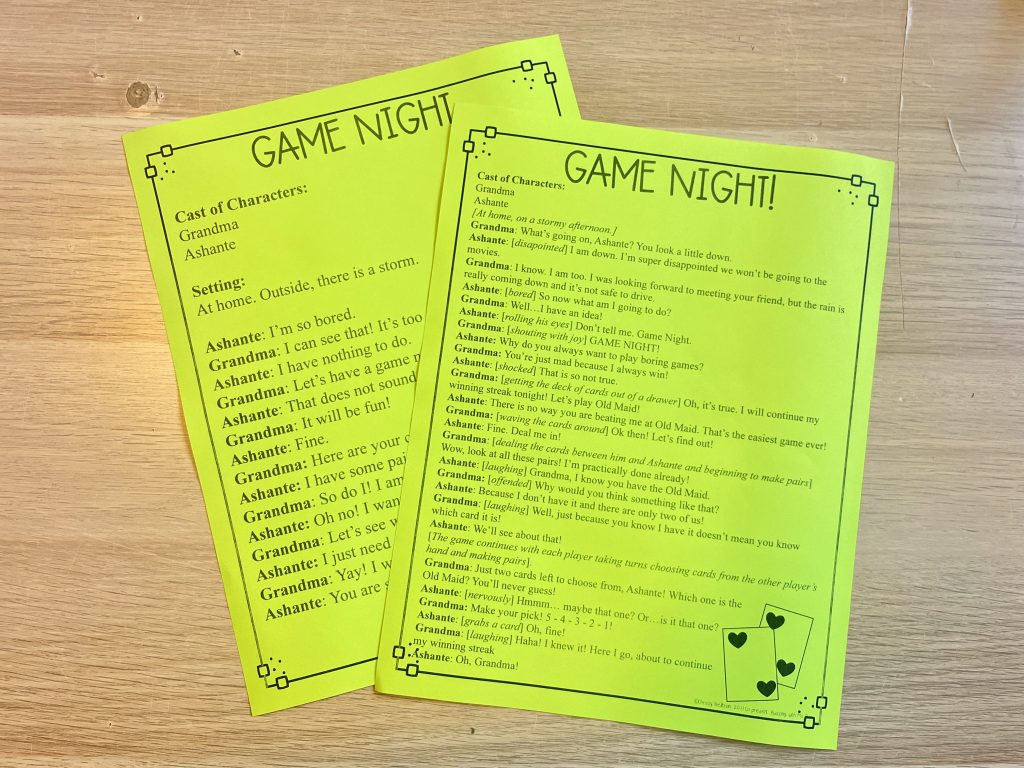 GAME NIGHT
Cast of Characters:
Grandma
Ashante
Setting:
At home. Outside, there is a storm.
Ashante: I'm so bored.
Grandma: I can see that! It's too
Ashante: I have nothing to do.
Grandma: Let's have a game
Ashante: That does not sound
Grandma: It will be fun!
Ashante: Fine.
Grandma: Here are your
Ashante: I have some
Grandma: So do I! I am
Ashante: Oh no! I
Grandma: Let's see
Ashante: I just need
Grandma: Yay! I
Ashante: You are
GAME NIGHT!
Cast of Characters:
Grandma
Ashante
[At home, on a stormy afternoon.]
Grandma: What's going on, Ashante? You look a little down.
Ashante: [disapointed] I am down. I'm super disappointed we won't be going to the
movies.
Grandma: I know. I am too. I was looking forward to meeting your friend, but the rain is
really coming down and it's not safe to drive.
Ashante: [bored] So now what am I going to do?
Grandma: Well…I have an idea!
Ashante: [rolling his eyes] Don't tell me. Game Night.
Grandma: [shouting with joy] GAME NIGHT!
Ashante: Why do you always want to play boring games?
Grandma: You're just mad because I always win!
Ashante: [shocked] That is so not true.
Grandma: [getting the deck of cards out of a drawer] Oh, it's true. I will continue my
winning streak tonight! Let's play Old Maid!
Ashante: There is no way you are beating me at Old Maid. That's the easiest game ever!
Grandma: [waving the cards around] Ok then! Let's find out!
Ashante: Fine. Deal me in!
Grandma: [dealing the cards between him and Ashante and beginning to make pairs]
Wow, look at all these pairs! I'm practically done already!
Ashante: [laughing] Grandma, I know you have the Old Maid.
Grandma: [offended] Why would you think something like that?
Ashante: Because I don't have it and there are only two of us!
Grandma: [laughing] Well, just because you know I have it doesn't mean you know
which card it is!
Ashante: We'll see about that!
[The game continues with each player taking turns choosing cards from the other player's
hand and making pairs].
Grandma: Just two cards left to choose from, Ashante! Which one is the
Old Maid? You'll never guess!
Ashante: [nervously] Hmmm… maybe that one? Or…is it that one?
Grandma: Make your pick! 5 - 4 - 3 - 2 - 1!
Ashante: [grabs a card] Oh, fine!
Grandma: [laughing] Haha! I knew it! Here I go, about to continue
my winning streak
Ashante: Oh, Grandma!